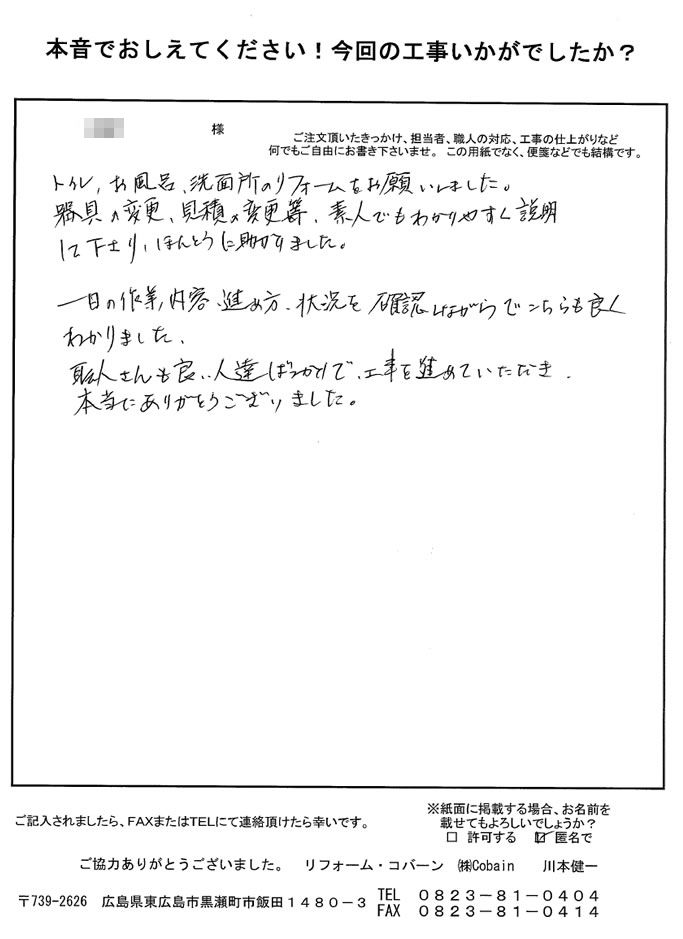 本音でおしえてください！今回の工事いかがでしたか？
様
ご注文頂いたきっかけ、担当者、職人の対応、工事の仕上がりなど
何でもご自由にお書き下さいませ。この用紙でなく、便箋などでも結構です。
トイレ、お風呂、洗面所のリフォームをお願いしました。
器具の変更、見積の変更等、素人でもわかりやすく説明
して下さり、ほんとうに助かりました。
一日の作業内容、進め方、状況を確認しながらでこちらも良く
わかりました、
職人さんも良い人達ばっかりで、工事を進めていただき、
本当にありがとうございました。
ご記入されましたら、FAXまたはTELにて連絡頂けたら幸いです。
※紙面に掲載する場合、お名前を
載せてもよろしいでしょうか？
□ 許可する ☑ 匿名で
ご協力ありがとうございました。 リフォーム・コバーン ㈱Cobain 川本健一
〒739-2626 広島県東広島市黒瀬町市飯田１４８０－３
TEL ０８２３－８１－０４０４
FAX ０８２３－８１－０４１４